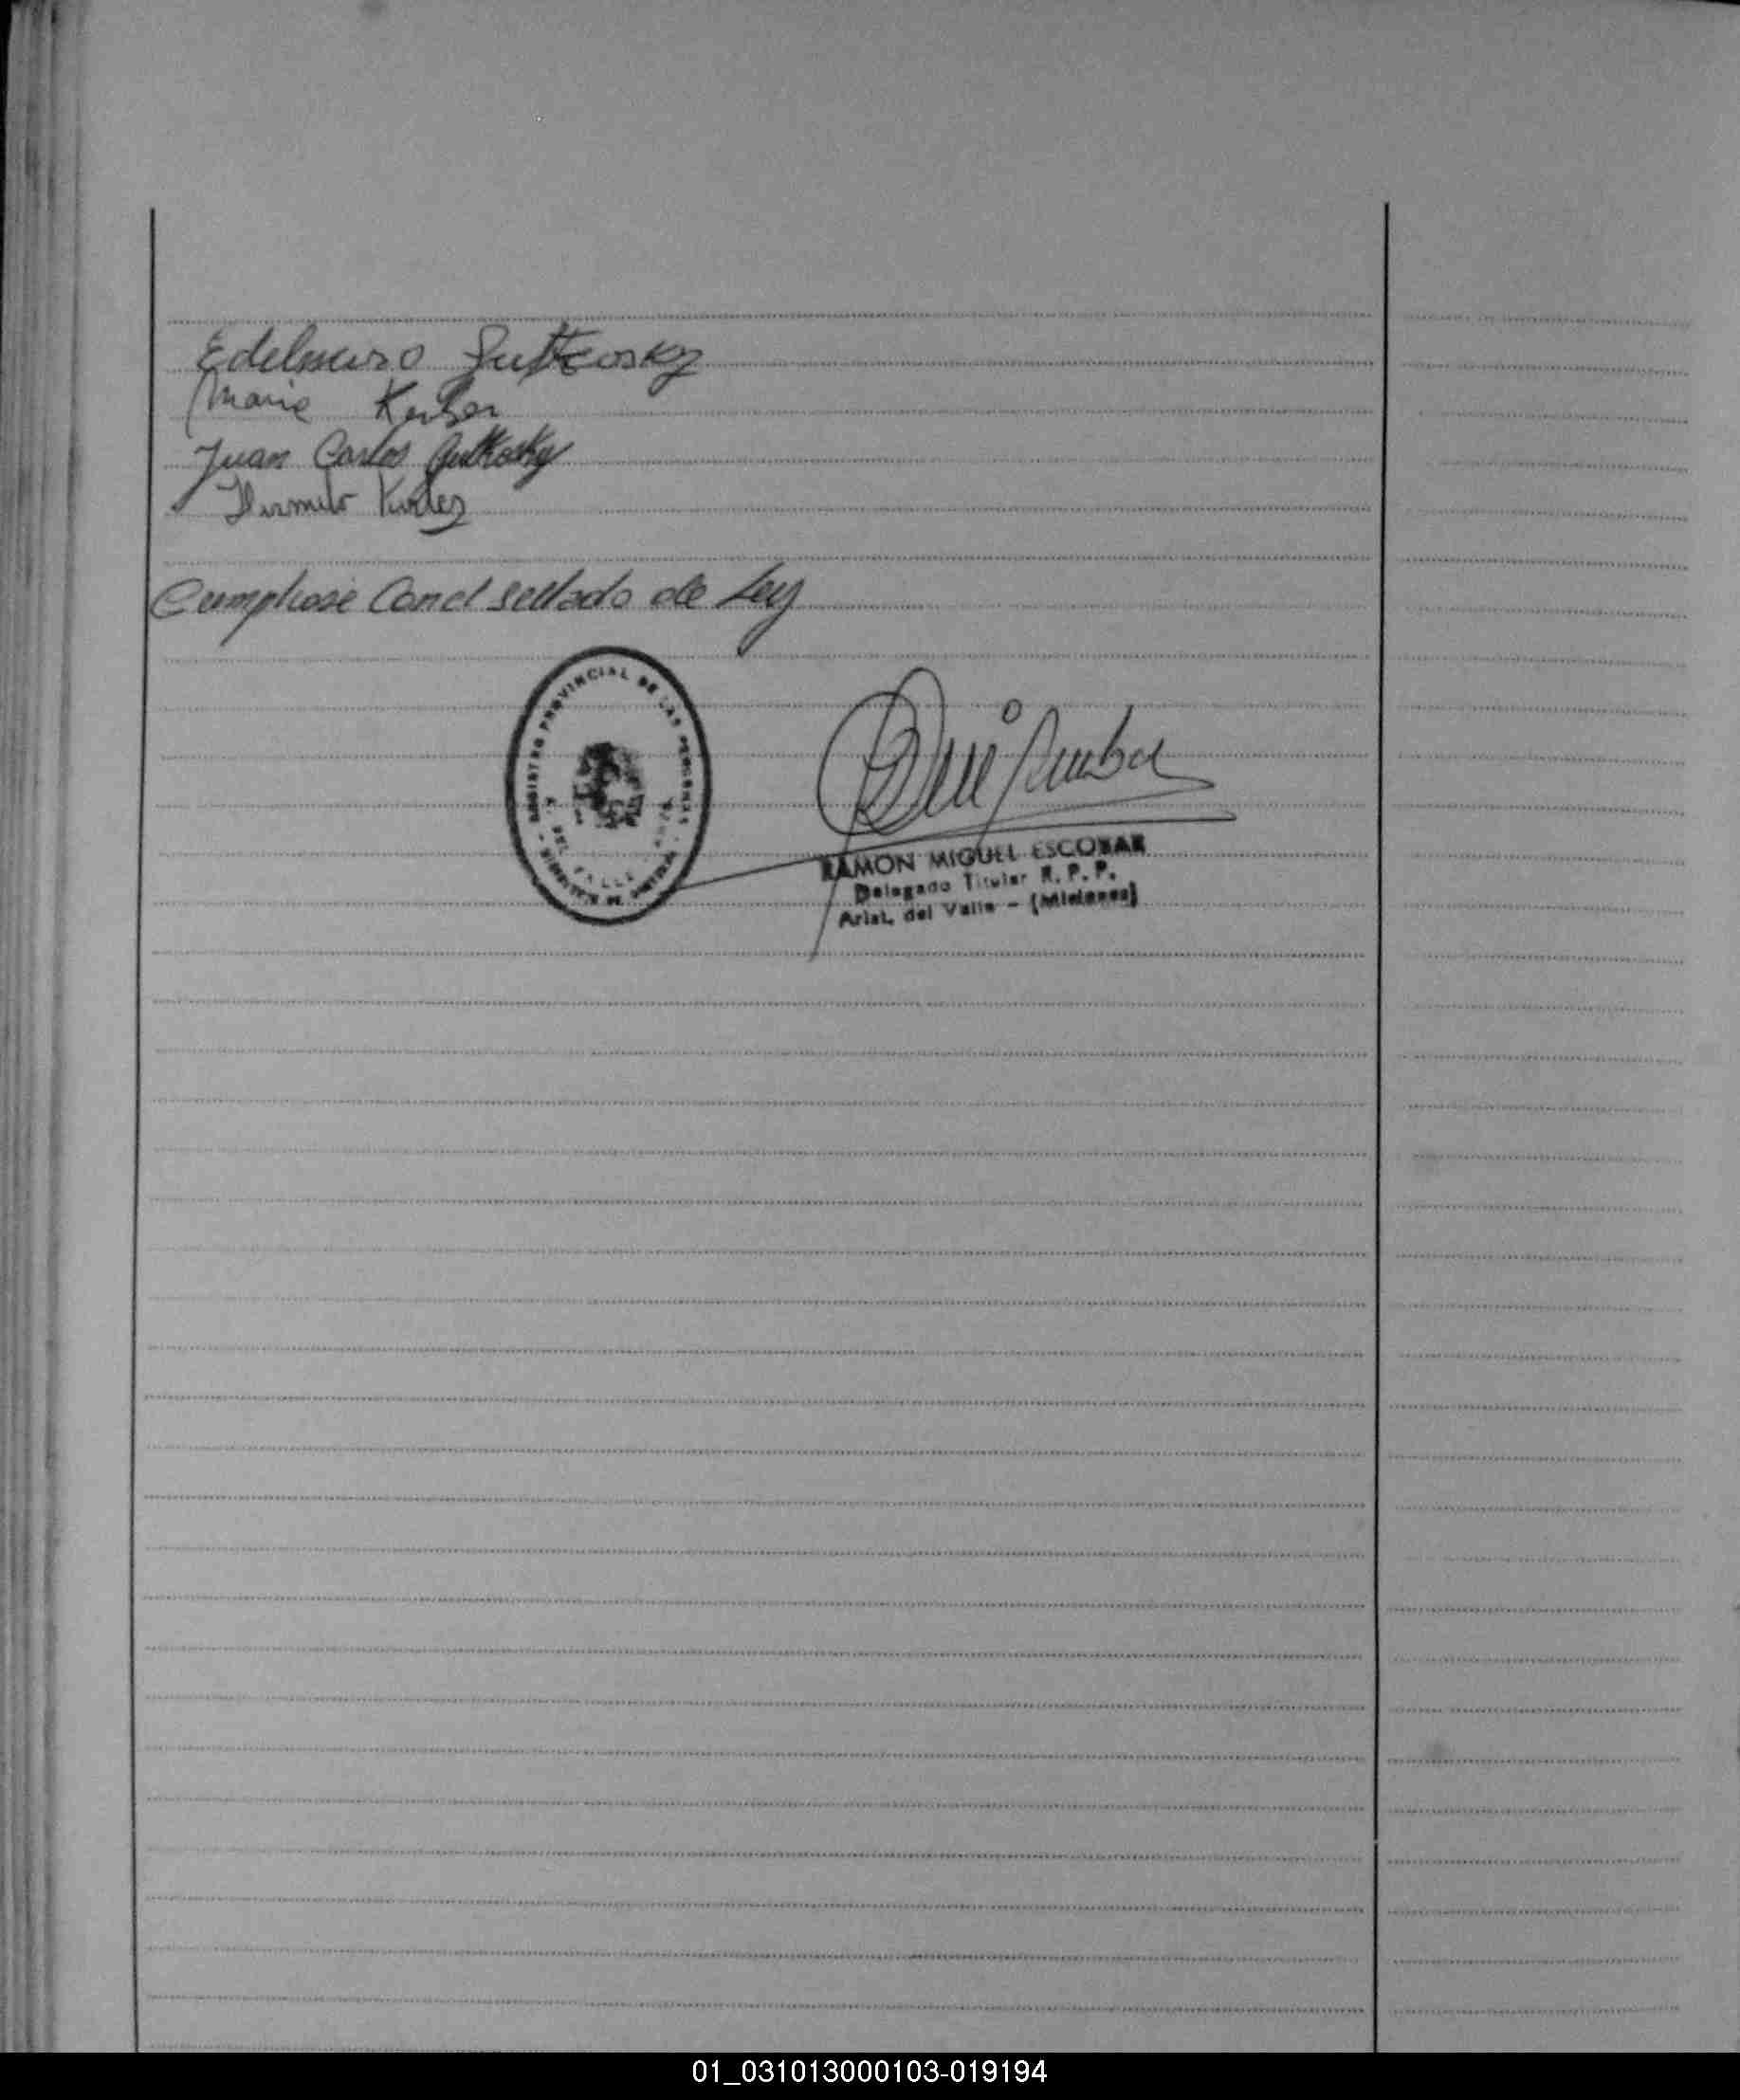 Edelmiro Gutkosky
Maria Kerber
Juan Carlos Gutkosky
Cumpliose Con el sellado de Ley
REGISTRO PROVINCIAL DE LAS PERSONAS
DEL VALLE
RAMON MIGUEL ESCOBAR
Delegado Titular R. P. P.
Arist. del Valle - (Misiones)
01_031013000103-019194